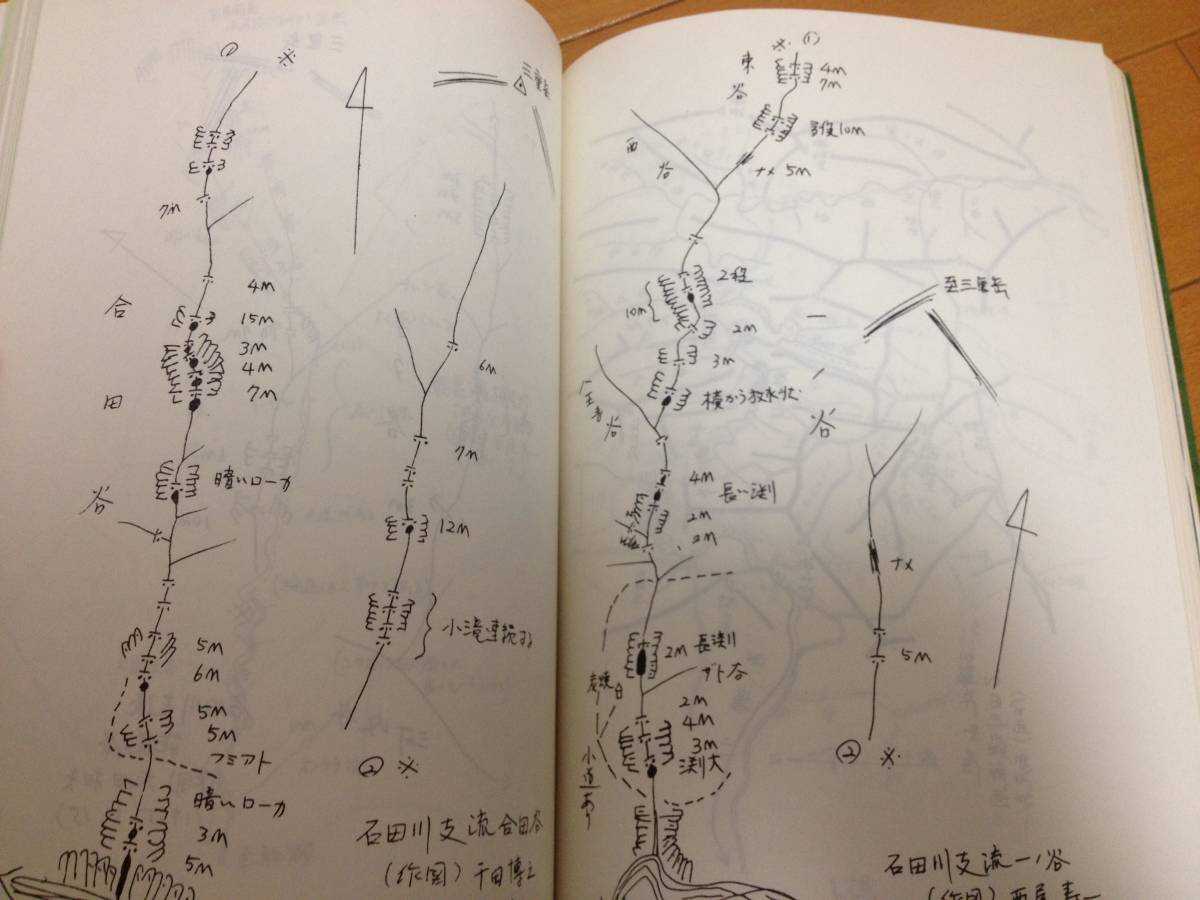 ① ※
三重岳
7m
4m
15m
3m
4m
7m
合田谷
暗いローカ
5m
6m
5m
5m
フミアト
暗いローカ
3m
5m
6m
7m
12m
小滝連続する
② ※
石田川支流合田谷
(作図) 千田博之
※ ①
東谷
4m
7m
多段10m
西谷
ナメ 5m
2程
10m
2m
3m
横から放水状
谷
4m
長い渕
2m
2m
2m 長渕
2m
4m
3m
渕大
小道あり
一ノ谷
至三重岳
ナメ
5m
② ※
石田川支流一ノ谷
(作図)